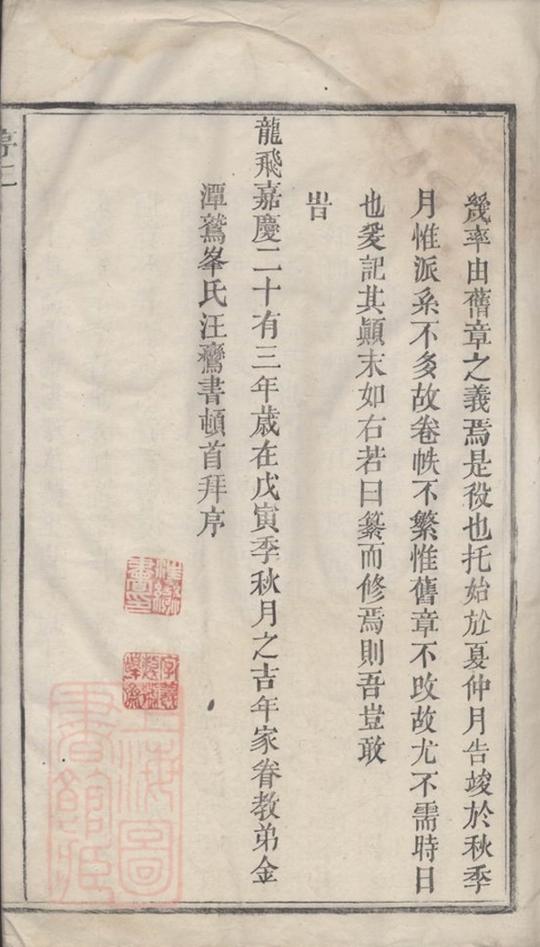 幾率由舊章之義焉是役也托始於夏仲月告竣於秋季
月惟派系不多故卷帙不繁惟舊章不改故尤不需時日
也爰記其顛末如右若曰纂而修焉則吾豈敢
旹
龍飛嘉慶二十有三年歲在戊寅季秋月之吉年家眷教弟金
潭鷲峯氏汪鸞書頓首拜序
上海圖書館藏